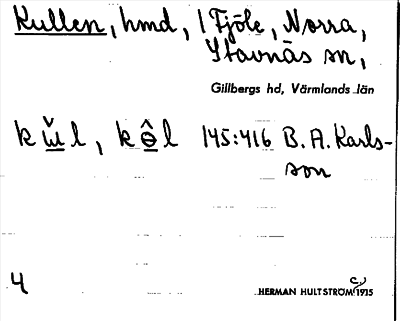 Kullen, hmd, 1 Fjöle, Norra,
Stavnäs sn,
Gillbergs hd, Värmlands län
145:416 B. A. Karls-
son
4
HERMAN HULTSTRÖM 1915